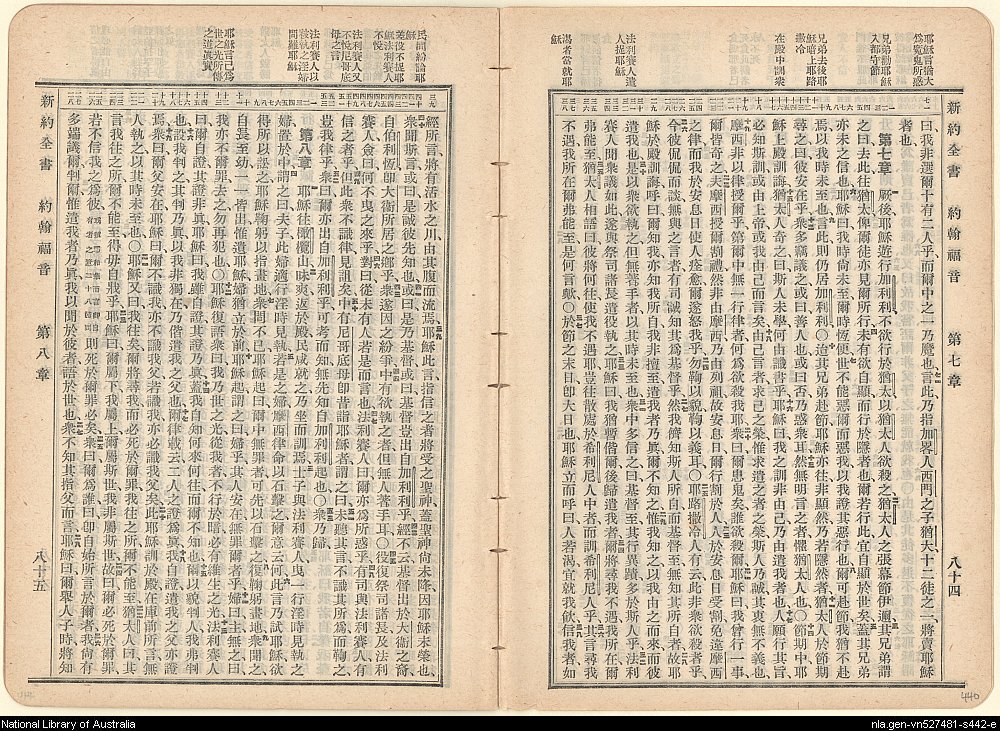 耶穌言猶太
爲寃鬼所惑
兄弟勸耶穌
入都守節
兄弟去後耶
穌暗上耶路
撒冷
在殿中訓衆
法利賽人遣
人捉耶穌
渴者當就耶
穌
新約全書 約翰福音 第七章 八十四
曰我非選爾十有二人乎而爾中之一乃魔也言此乃指加畧人西門之子猶大十二徒之一將賣耶穌
者也
第七章 厥後耶穌遊行加利利不欲行於猶太以猶太人欲殺之猶太人之張幕節伊邇其兄弟謂
之曰去此往猶太俾爾徒亦見爾所行未有欲自顯而行於隱者也爾若行此宜自顯於世矣蓋其兄弟
亦未之信也耶穌曰我時尚未至爾時恆便世不能惡爾而惡我以我證其惡行也爾可赴節我猶不赴
焉以我時未至也言此則仍居加利利○迨其兄弟赴節耶穌亦往非顯然乃若隱然者猶太人於節期
尋之曰彼安在乎衆多竊議之或曰善人也或曰否乃惑衆耳然無明言之者懼猶太人也○節期中耶
穌上殿訓誨猶太人奇之曰斯人未學何由識書乎耶穌曰我之訓非由己乃由遣我者也人願行其旨
必知斯訓或由上帝或我由己而言矣由己言者求己之榮惟求遣之者之榮斯人乃誠其衷無不義也
摩西非以律授爾乎第爾中無一行律者何爲欲殺我耶衆曰爾患鬼矣誰欲殺爾耶穌曰我曾行一事
爾皆奇之夫摩西授爾割禮然非由摩西乃由列祖故安息日爾行割於人人於安息日受割免違摩西
之律而我於安息日使人痊愈爾遂怒我乎勿鞫以貌鞫以義耳○耶路撒冷人有云此非衆欲殺者乎
今彼侃侃而談無與之言者有司誠知其爲基督乎然我儕知斯人所自而基督至無知其所自者故耶
穌於殿訓誨呼曰爾知我亦知我所自我非擅至遣我者乃眞爾不知之惟我知之以我由之而來而彼
遣我也是以衆欲執之但無著手者以其時未至也衆中多信之曰基督至其行異蹟多於斯人乎法利
賽人聞衆議如此遂與祭司諸長遣役執之耶穌曰我猶暫偕爾後歸遣我者爾將尋我不遇我所在爾
弗能至猶太人相語曰彼將何往使我不遇耶豈往散處於希利尼人中者而訓希利尼人乎其言尋我
不遇我所在爾弗能至是何言歟○於節之末日卽大日也耶穌立而呼曰人若渴宜就我飲信我者如
440
民間紛論耶
穌
差役不捉耶
穌法利賽人
不悅
法利賽人又
不悅尼哥底
母之言
法利賽人以
犯淫婦
問難耶穌
耶穌言己爲
世之光所傳
之道眞實
經所言將有活水之川由其腹而流焉耶穌此言指信之者將受之聖神蓋聖神尚未降因耶穌未榮也
衆聞斯言或曰是誠彼先知也或曰是乃基督或曰基督豈出自加利利乎經不云基督出於大衛之裔
自伯利恆卽大衛所居之鄉乎衆遂因之紛爭中有欲執之者但無人著手耳○役復祭司諸長及法利
賽人僉曰何不曳之來乎對曰從未有人若是而言也法利賽人曰爾亦爲所惑乎有司與法利賽人有
信之者乎但此衆不識律見詛矣中有尼哥底母卽昔詣耶穌者謂之曰未聽其言不識其所爲而鞫之
豈我律乎衆曰爾亦出自加利利乎可考而知無先知自加利利起也○衆乃歸
第八章 耶穌往橄欖山昧爽返於殿民咸就之乃坐而訓焉士子與法利賽人曳一行淫時見執之
婦置於中謂之曰夫子此婦適行淫時見執若是之婦摩西律命以石擊之爾意云何此言乃試耶穌欲
得所以訟之耶穌鞠躬以指畫地衆問不已耶穌起曰爾中無罪者可先以石擊之復鞠躬畫地衆聞之
自長至幼一一皆出惟遺耶穌婦猶立於前耶穌起謂之曰婦乎其人安在無罪爾者乎婦曰主無之曰
我亦不爾罪去勿再犯也○耶穌復語衆曰我乃世之光從我者不行於暗必有維生之光法利賽人
曰爾自證其證非眞耶穌曰我雖自證其證乃眞蓋我自知何來何往而爾不知也爾以貌判人我弗判
也設我判之其判乃眞以我非獨在乃偕遣我之父也爾律載云二人之證爲眞我自證遣我之父亦證
焉衆曰爾父安在耶穌曰爾不識我亦不識我父若識我亦必識我父矣此耶穌訓於殿在庫前所言無
人執之以其時未至也○耶穌又曰我往矣爾將尋我而必死於爾罪我往之所爾不能至猶太人曰其
言我往之所爾不能至得毋自戕乎耶穌曰爾屬下我屬上爾屬斯世我非屬斯世故曰爾必死於爾罪
若不信我之爲彼 則死於爾罪必矣衆曰爾爲誰曰卽自始所言於爾者我尚有
多端議爾判爾惟遣我者乃眞我以聞於彼者語於世也衆不知其指父而言耶穌曰爾舉人子時將知
新約全書 約翰福音 第八章 八十五
National Library of Australia
nla.gen-vn527481-s442-e